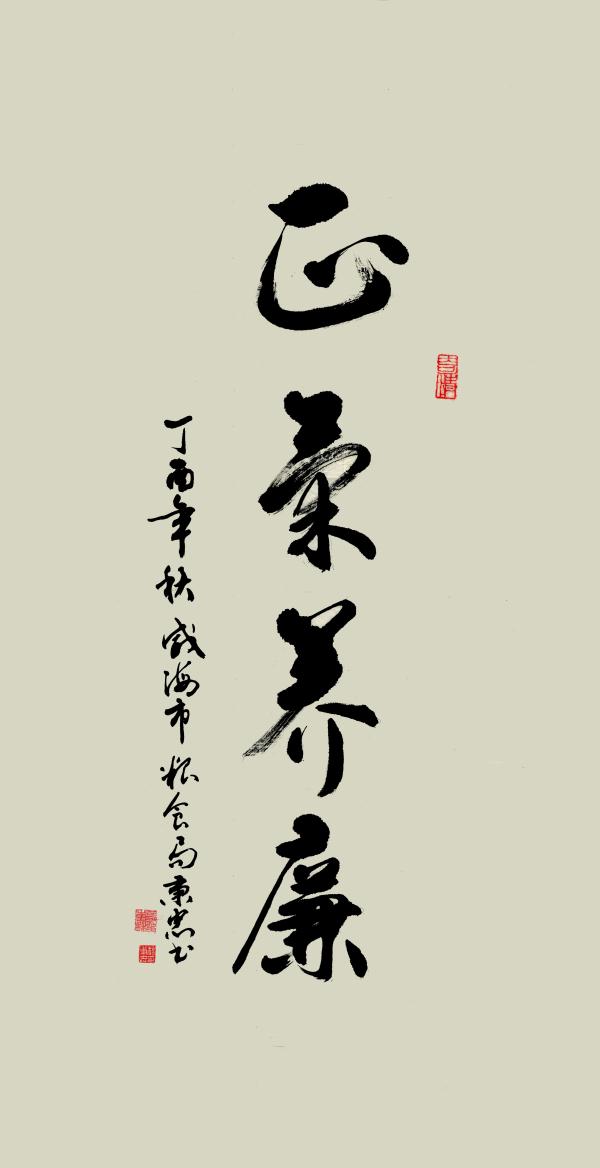 正氣养廉
丁酉年秋 威海市粮食局东忠书